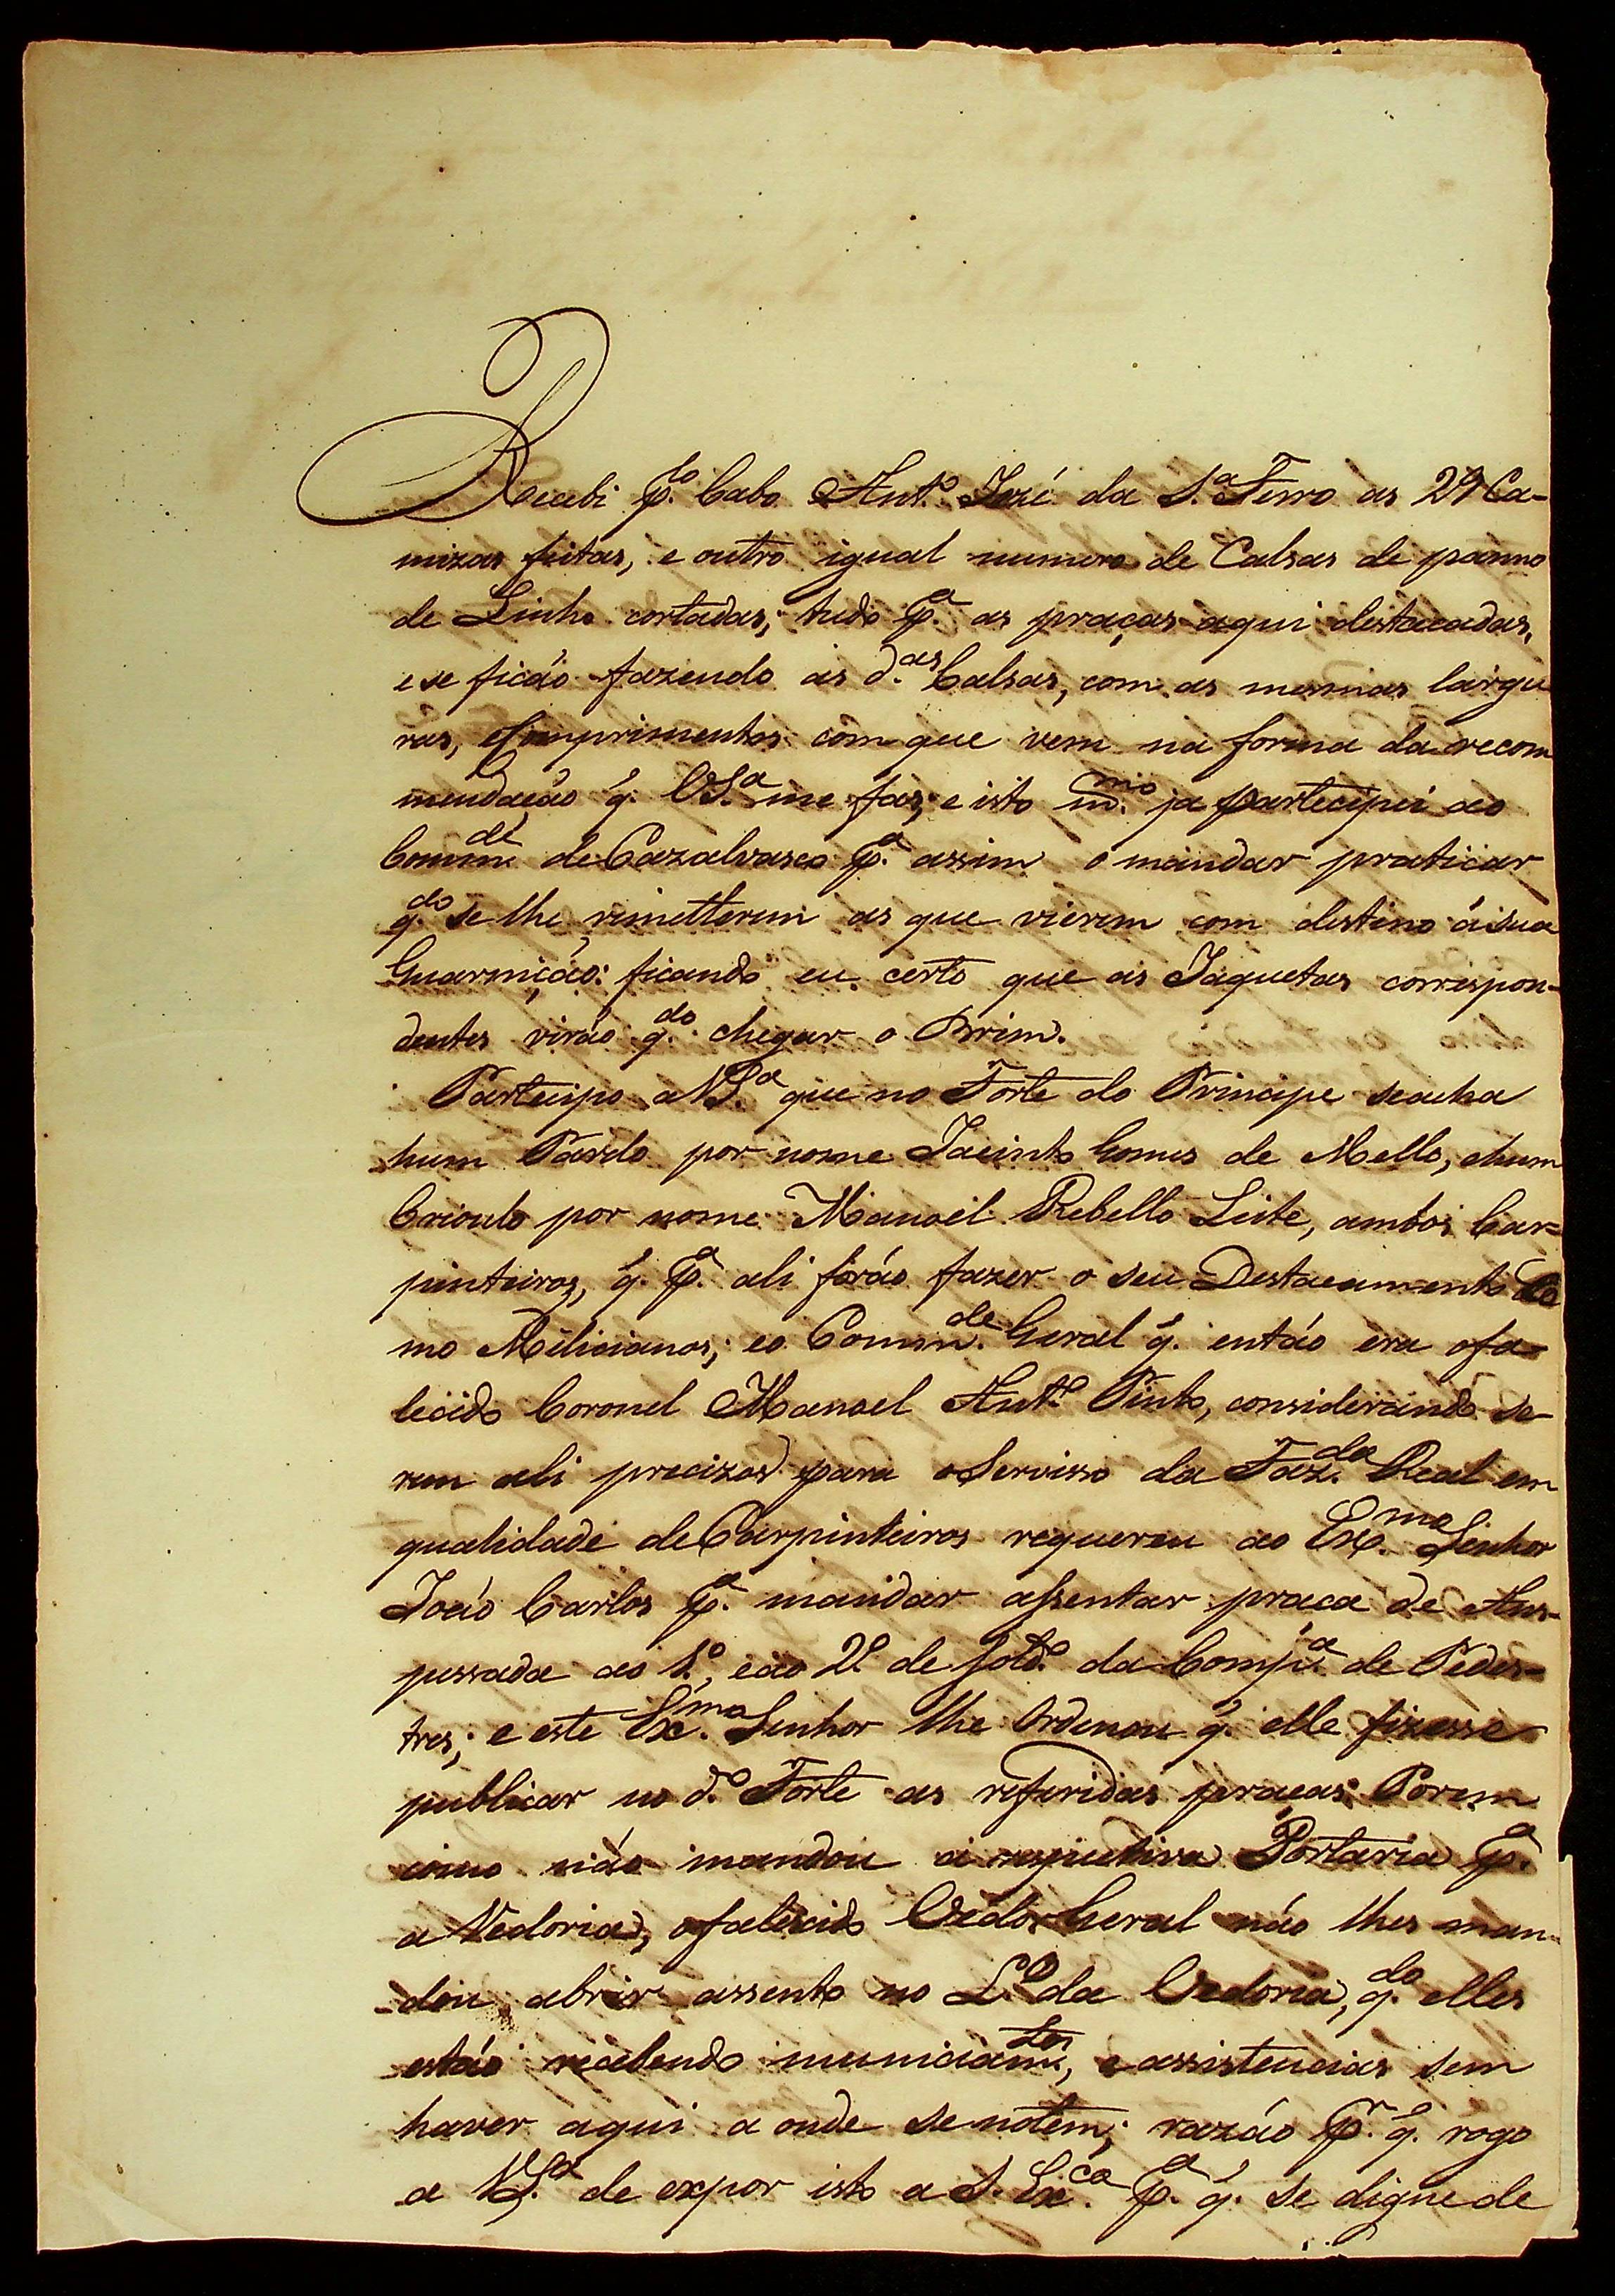 Recebi p.lo Cabo Ant.o Jozé da S.a Ferro as 29 Ca-
mizas feitas, e outro igual numero de Calsas de panno
de Linho cortadas; tudo p.a as praças aqui destacadas,
e se ficáo fazendo as d.as Calsas, com as mesmas largu
ras, eComprimentos com que vem na forma da recom
mendação q. VS.a me fas; e isto m.mo ja partecipei ao
Comm.de de Cazalvasco p.a assim o mandar praticar
q.do se lhe remetterem as que vierem com destino á sua
Guarnição: ficando eu certo que as Jaquetas correspon-
dentes viráo q.do chegar o Brim.
Partecipo a VS.a que no Forte do Principe seacha
hum Pardo por nome Jacinto Gomes de Mello, ehum
Crioulo por nome Manoel Rebello Leite, ambos Car=
pinteiros, q. p.a ali foráo fazer o seu Destacamento Co
mo Milicianos; eo Comm.de Geral q. entáo era ofa-
lecido Coronel Manoel Ant.o Pinto, considerando se-
rem ali precizos para oServisso da Faz.da Real em
qualidade deCarpinteiros requereu ao Ex.mo Senhor
Joáo Carlos p.a mandar assentar praça de Ans-
pessada ao 1.o, eao 2.o de sold.o da Comp.a de Pedes-
tres; e este Ex.mo Senhor lhe Ordenou q. elle fizesse
publicar no d.o Forte as referidas praças: Porem
como náo mandou a respectiva Portaria p.a
a Vedoria, ofalecido Vedor Geral náo lhes man-
dou abrir assento no L.o da Vedoria, q.do elles
estáo recebendo municiam.tos, e assistencias sem
haver aqui a onde se notem; razáo p.r q. rogo
a VS.a de expor isto a S. Ex.ca p.a q. se digne de